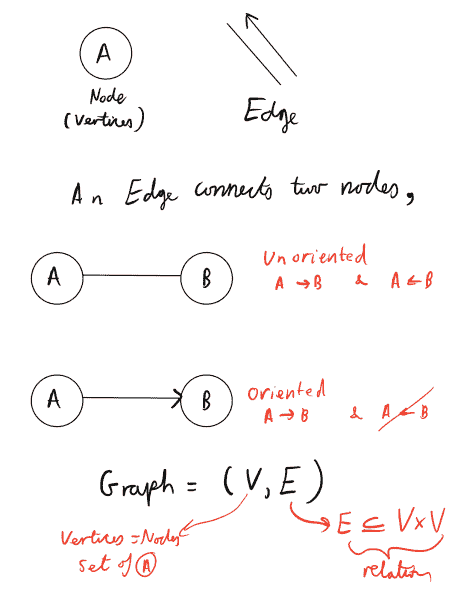 A
Node
(Vertices)
Edge
An Edge connects two nodes,
A B
Unoriented
A → B & A ← B
A B
Oriented
A → B & A ← B
Graph = (V, E)
Vertices = Nodes
Set of A
E ⊆ V×V
relation